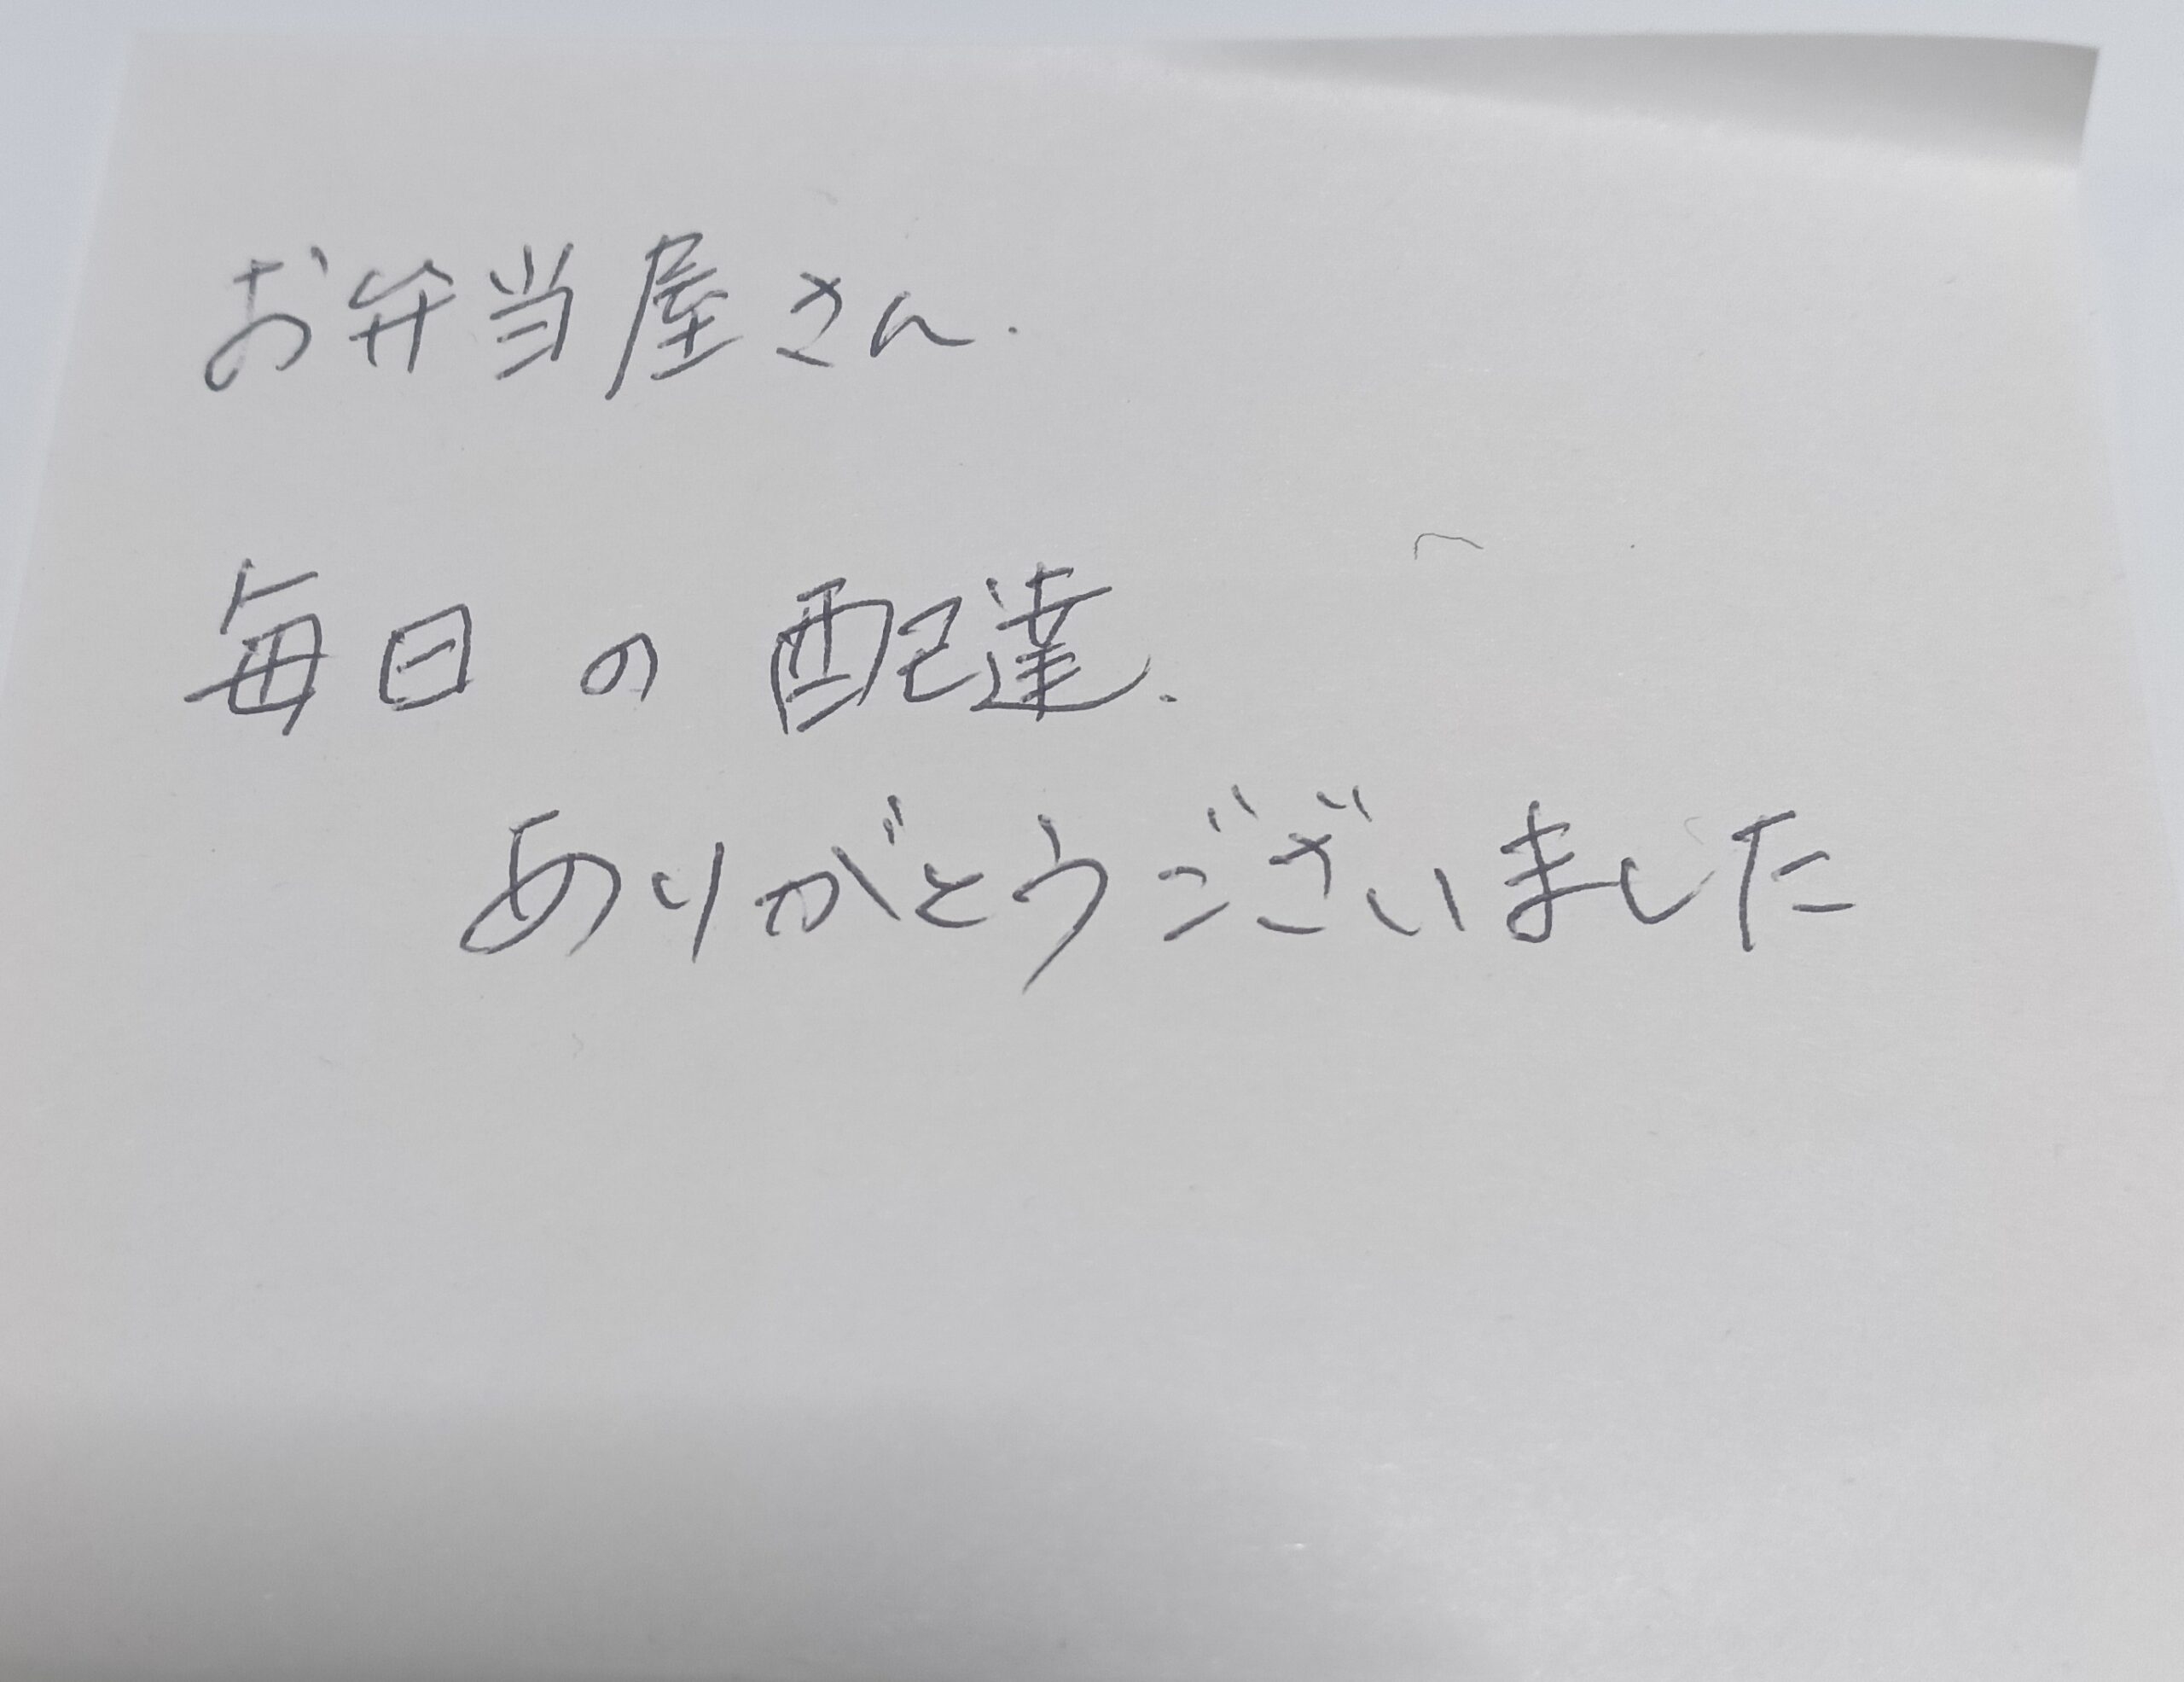 お弁当屋さん.
毎日の配達.
ありがとうございました